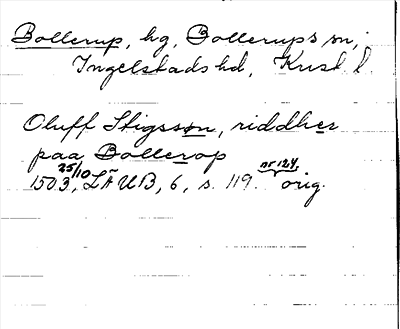 Bollerup, hg, Bollerups sn,
Ingelstads hd, Krist. l.
Oluff Stigsson, riddher
paa Bollerop
1503 25/10, LÄUB, 6, s. 119. nr 124, orig.